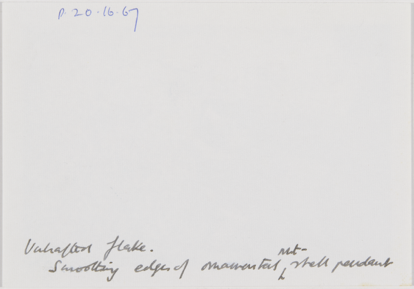 P. 20.16.67
Unhafted flake.
Smoothing edges of ornamental nut-shell pendant